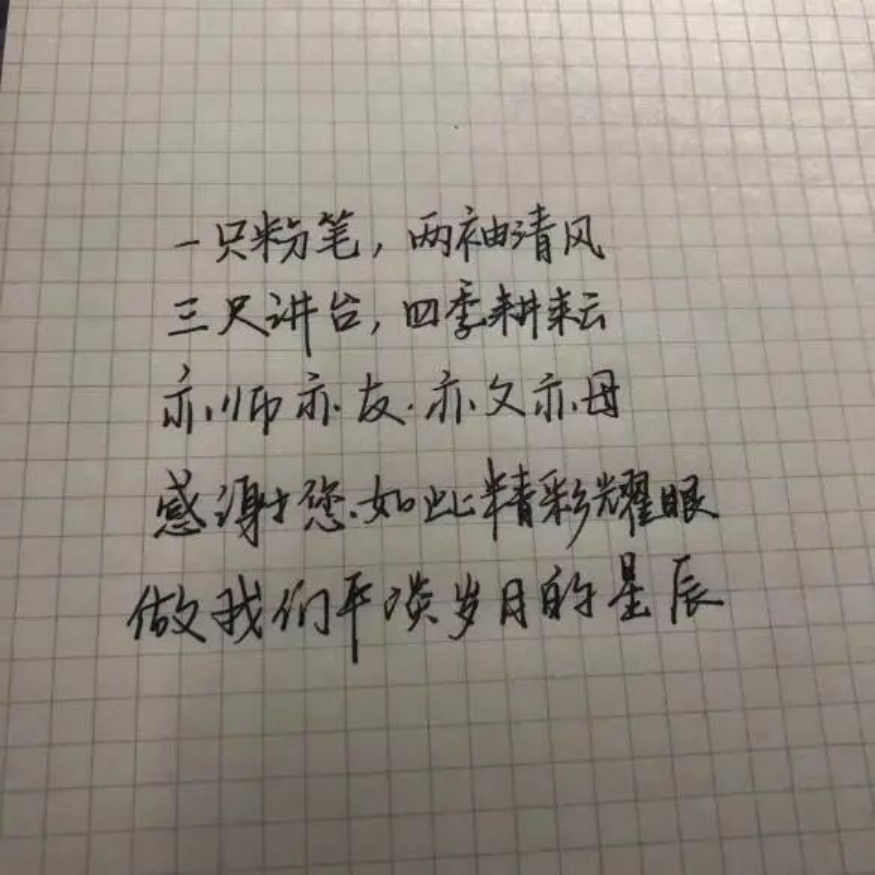 一只粉笔，两袖清风
三尺讲台，四季耕耘
亦师亦友.亦父亦母
感谢您.如此精彩耀眼
做我们平淡岁月的星辰